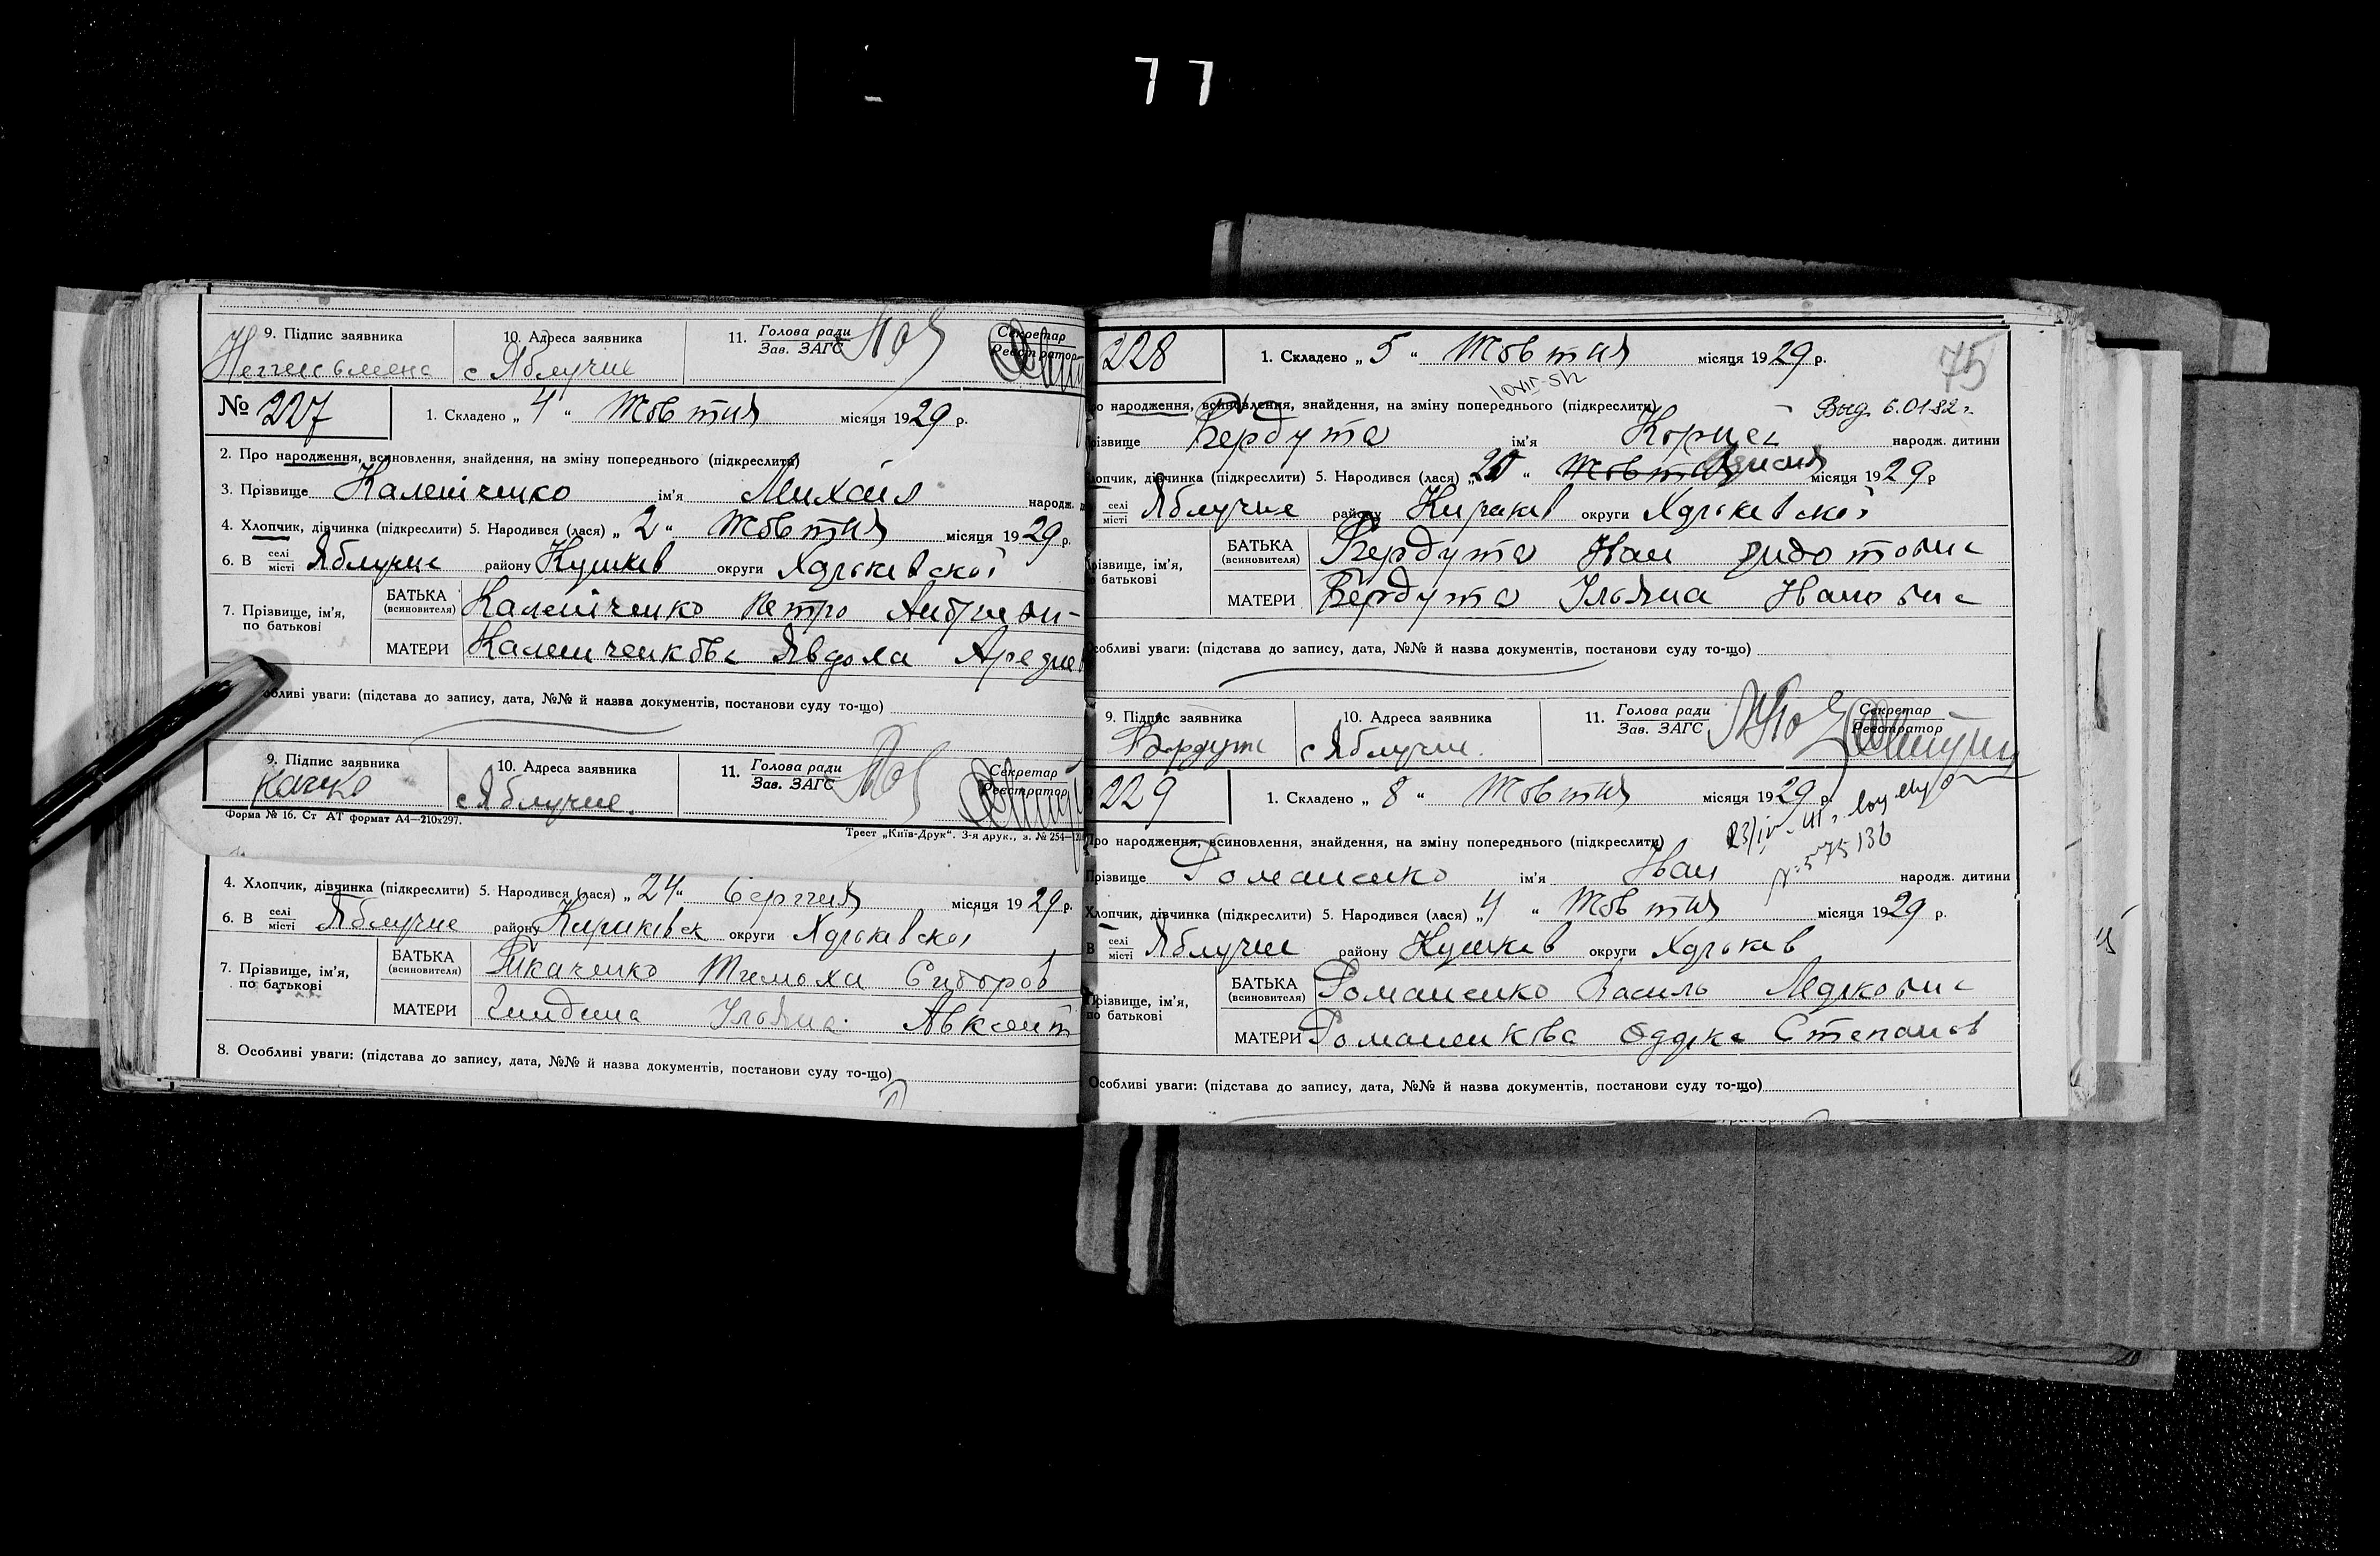 77
9. Підпис заявника
10. Адреса заявника
11. Голова ради
Зав. ЗАГС
Секретар
Реєстратор
с Яблучне
№ 227
1. Складено „ 4 “ Жовтня місяця 1929 р.
2. Про народження, всиновлення, знайдення, на зміну попереднього (підкреслити)
3. Прізвище Калениченко ім'я Михайл народж.
4. Хлопчик, дівчинка (підкреслити) 5. Народився (лася) „ 2 “ Жовтня місяця 1929 р.
6. В селі
місті Яблучне району округи Харьківскої
7. Прізвище, ім'я,
по батькові
БАТЬКА
(всиновителя) Калениченко Петро
МАТЕРИ Явдоха
обливі уваги: (підстава до запису, дата, №№ й назва документів, постанови суду то-що)
9. Підпис заявника
10. Адреса заявника
11. Голова ради
Зав. ЗАГС
Секретар
Реєстратор
с Яблучне.
Форма № 16. Ст АТ формат А4—210х297.
Трест „Київ-Друк“. 3-я друк., з. № 254—
4. Хлопчик, дівчинка (підкреслити) 5. Народився (лася) „ 24 “ Серпня місяця 1929 р.
6. В селі
місті Яблучне району Кириківск округи Харьківскої
7. Прізвище, ім'я,
по батькові
БАТЬКА
(всиновителя) Ткаченко Тимоха Сидоров
МАТЕРИ Ульяна Авксент
8. Особливі уваги: (підстава до запису, дата, №№ й назва документів, постанови суду то-що)
228
1. Складено „ 5 “ Жовтня місяця 1929 р.
75
ро народження, всиновлення, знайдення, на зміну попереднього (підкреслити)
Выд. 6.01.82 г.
різвище Бердута ім'я народж. дитини
лопчик, дівчинка (підкреслити) 5. Народився (лася) „ “ Жовтня місяця 1929 р
селі
місті Яблучне району Кириків округи Харьківскої
різвище, ім'я,
батькові
БАТЬКА
(всиновителя) Бердута Иван
МАТЕРИ Бердута Ульяна Иванов
собливі уваги: (підстава до запису, дата, №№ й назва документів, постанови суду то-що)
9. Підпис заявника
10. Адреса заявника
11. Голова ради
Зав. ЗАГС
Секретар
Реєстратор
Бердута
с Яблучне.
229
1. Складено „ 8 “ Жовтня місяця 1929 р.
Про народження, всиновлення, знайдення, на зміну попереднього (підкреслити)
Прізвище Романенко ім'я Иван народж. дитини
Хлопчик, дівчинка (підкреслити) 5. Народився (лася) „ 4 “ Жовтня місяця 1929 р.
В селі
місті Яблучне району округи Харьків
Прізвище, ім'я,
по батькові
БАТЬКА
(всиновителя) Романенко Василь
МАТЕРИ Одарка Степанов
Особливі уваги: (підстава до запису, дата, №№ й назва документів, постанови суду то-що)